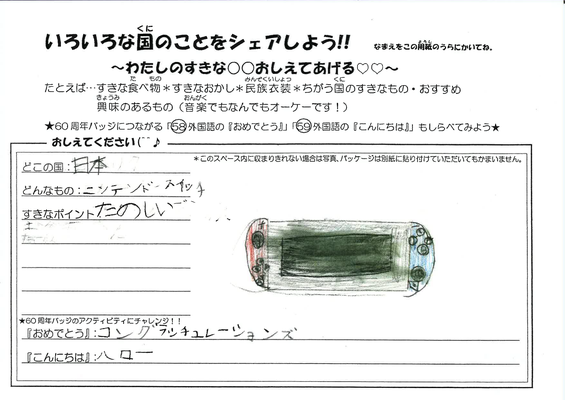 いろいろな国のことをシェアしよう!!
なまえをこの用紙のうらにかいてね。
～わたしのすきな〇〇おしえてあげる♡♡～
たとえば…すきな食べ物＊すきなおかし＊民族衣装＊ちがう国のすきなもの・おすすめ
興味のあるもの（音楽でもなんでもオーケーです！）
★60周年バッジにつながる「58外国語の『おめでとう』」「59外国語の『こんにちは』」もしらべてみよう★
おしえてください(^^♪
＊このスペース内に収まりきれない場合は写真、パッケージは別紙に貼り付けていただいてもかまいません。
どこの国：日本
どんなもの：ニンテンドースイッチ
すきなポイント たのしい
★60周年バッジのアクティビティにチャレンジ！！
『おめでとう』：コングラッチュレーションズ
『こんにちは』：ハロー